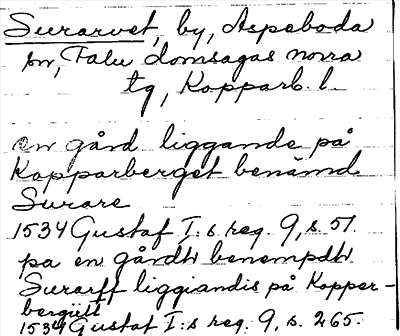 Surarvet, by, Aspeboda
sn, Falu domsagas norra
tg, Kopparb. l.
en gård liggande på
Kopparberget benämd
Surare
1534 Gustaf I:s reg. 9, s. 51.
pa en gårdh benempdh
Surarff liggiandis på Kopper-
bergiitt
1534 Gustaf I:s reg. 9, s. 265.